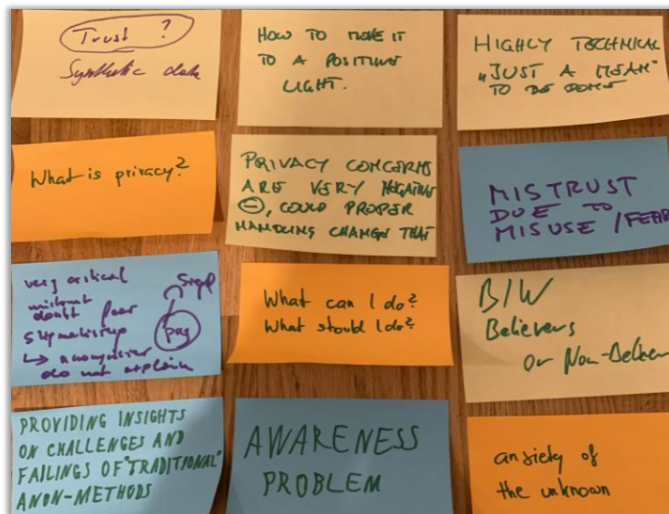 Trust ?
Synthetic data
HOW TO MOVE IT
TO A POSITIVE
LIGHT.
HIGHLY TECHNICAL
„JUST A MEAN"
TO BE DONE
What is privacy?
PRIVACY CONCERNS
ARE VERY NEGATIVE
⊖, COULD PROPER
HANDLING CHANGE THAT
MISTRUST
DUE TO
MISUSE / FEAR
very critical
mistrust
doubt fear
↳ anonymisier
do not explain
What can I do?
What should I do?
B/W
Believers
or Non-Believers
PROVIDING INSIGHTS
ON CHALLENGES AND
FAILINGS OF "TRADITIONAL"
ANON-METHODS
AWARENESS
PROBLEM
anxiety of
the unknown